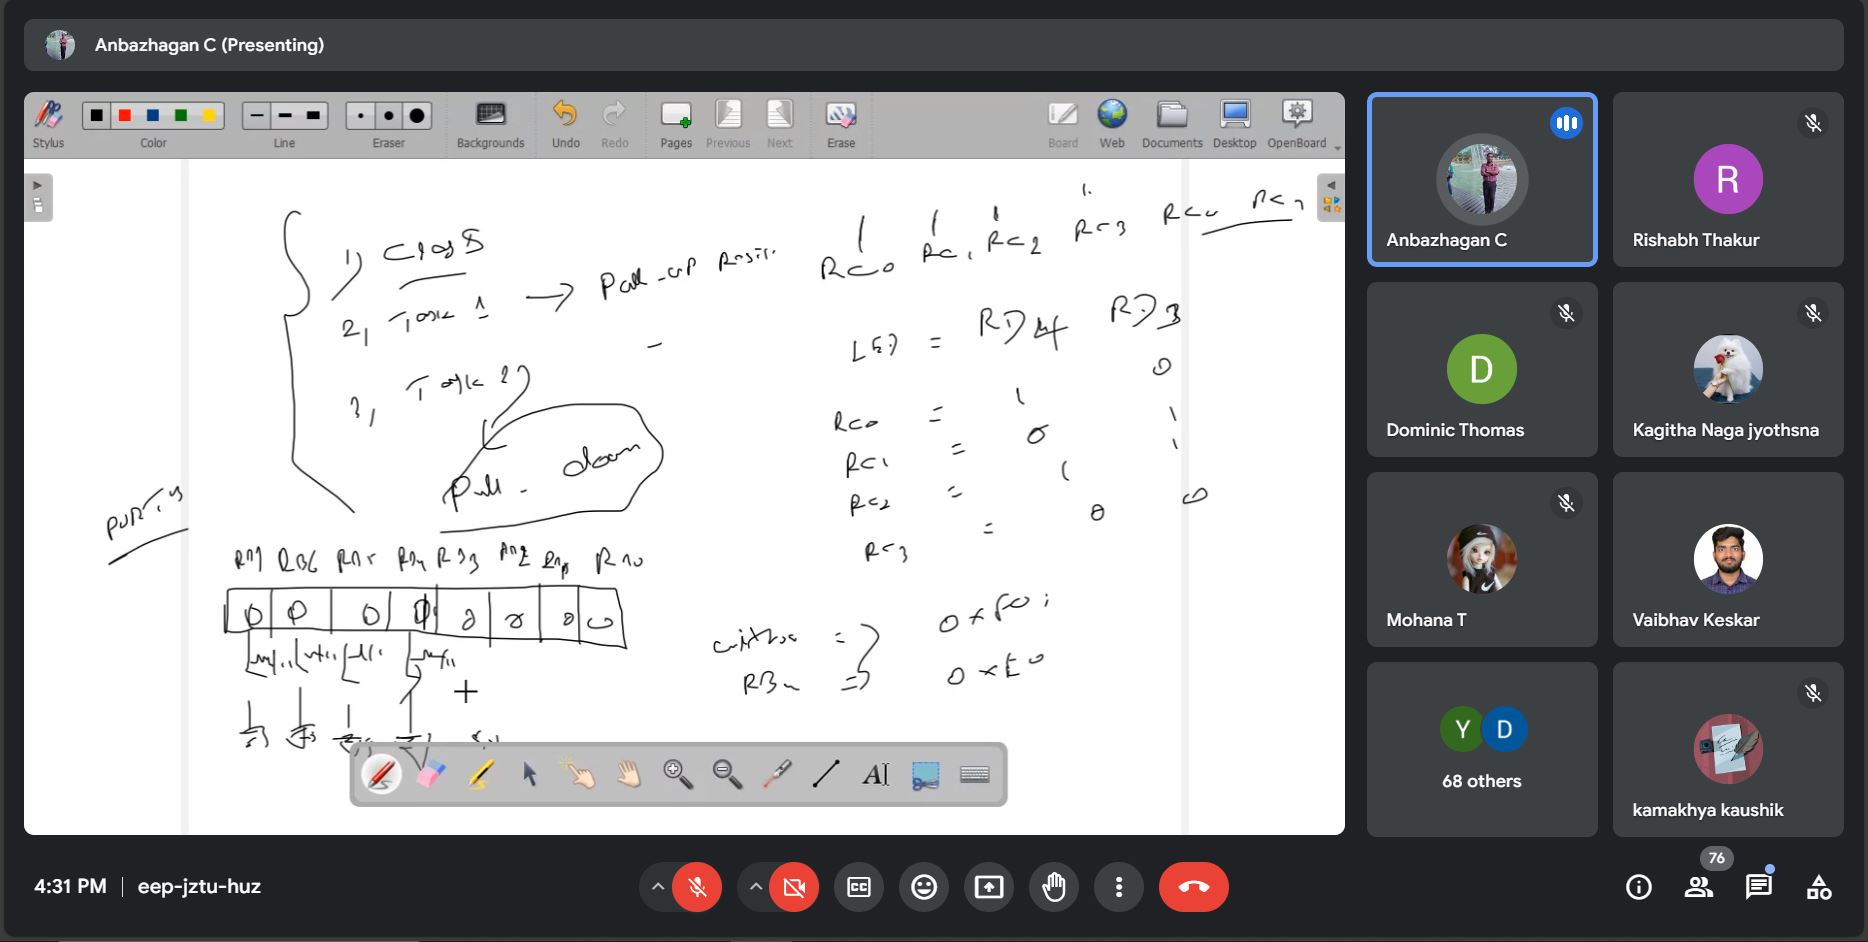 Anbazhagan C (Presenting)
Stylus
Color
Line
Eraser
Backgrounds
Undo
Redo
Pages
Previous
Next
Erase
Board
Web
Documents
Desktop
OpenBoard
1) Class
2, Task 1 → Pull-up
3, Task 2
Pull-down
RC0 RC1 RC2 RC3
LED = RD4 RD3
RC0 = 1 0
RC1 = 0 1
RC2 = 1 1
RC3 = 0 0
0xF0;
0xE0
R
D
Y D
Anbazhagan C
Rishabh Thakur
Dominic Thomas
Kagitha Naga jyothsna
Mohana T
Vaibhav Keskar
68 others
kamakhya kaushik
4:31 PM | eep-jztu-huz
CC
76